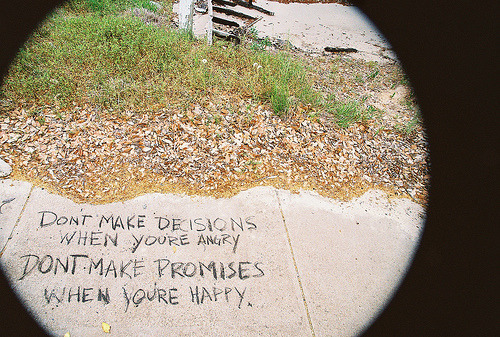 DONT MAKE DECISIONS
WHEN YOU'RE ANGRY
DONT MAKE PROMISES
WHEN YOU'RE HAPPY.